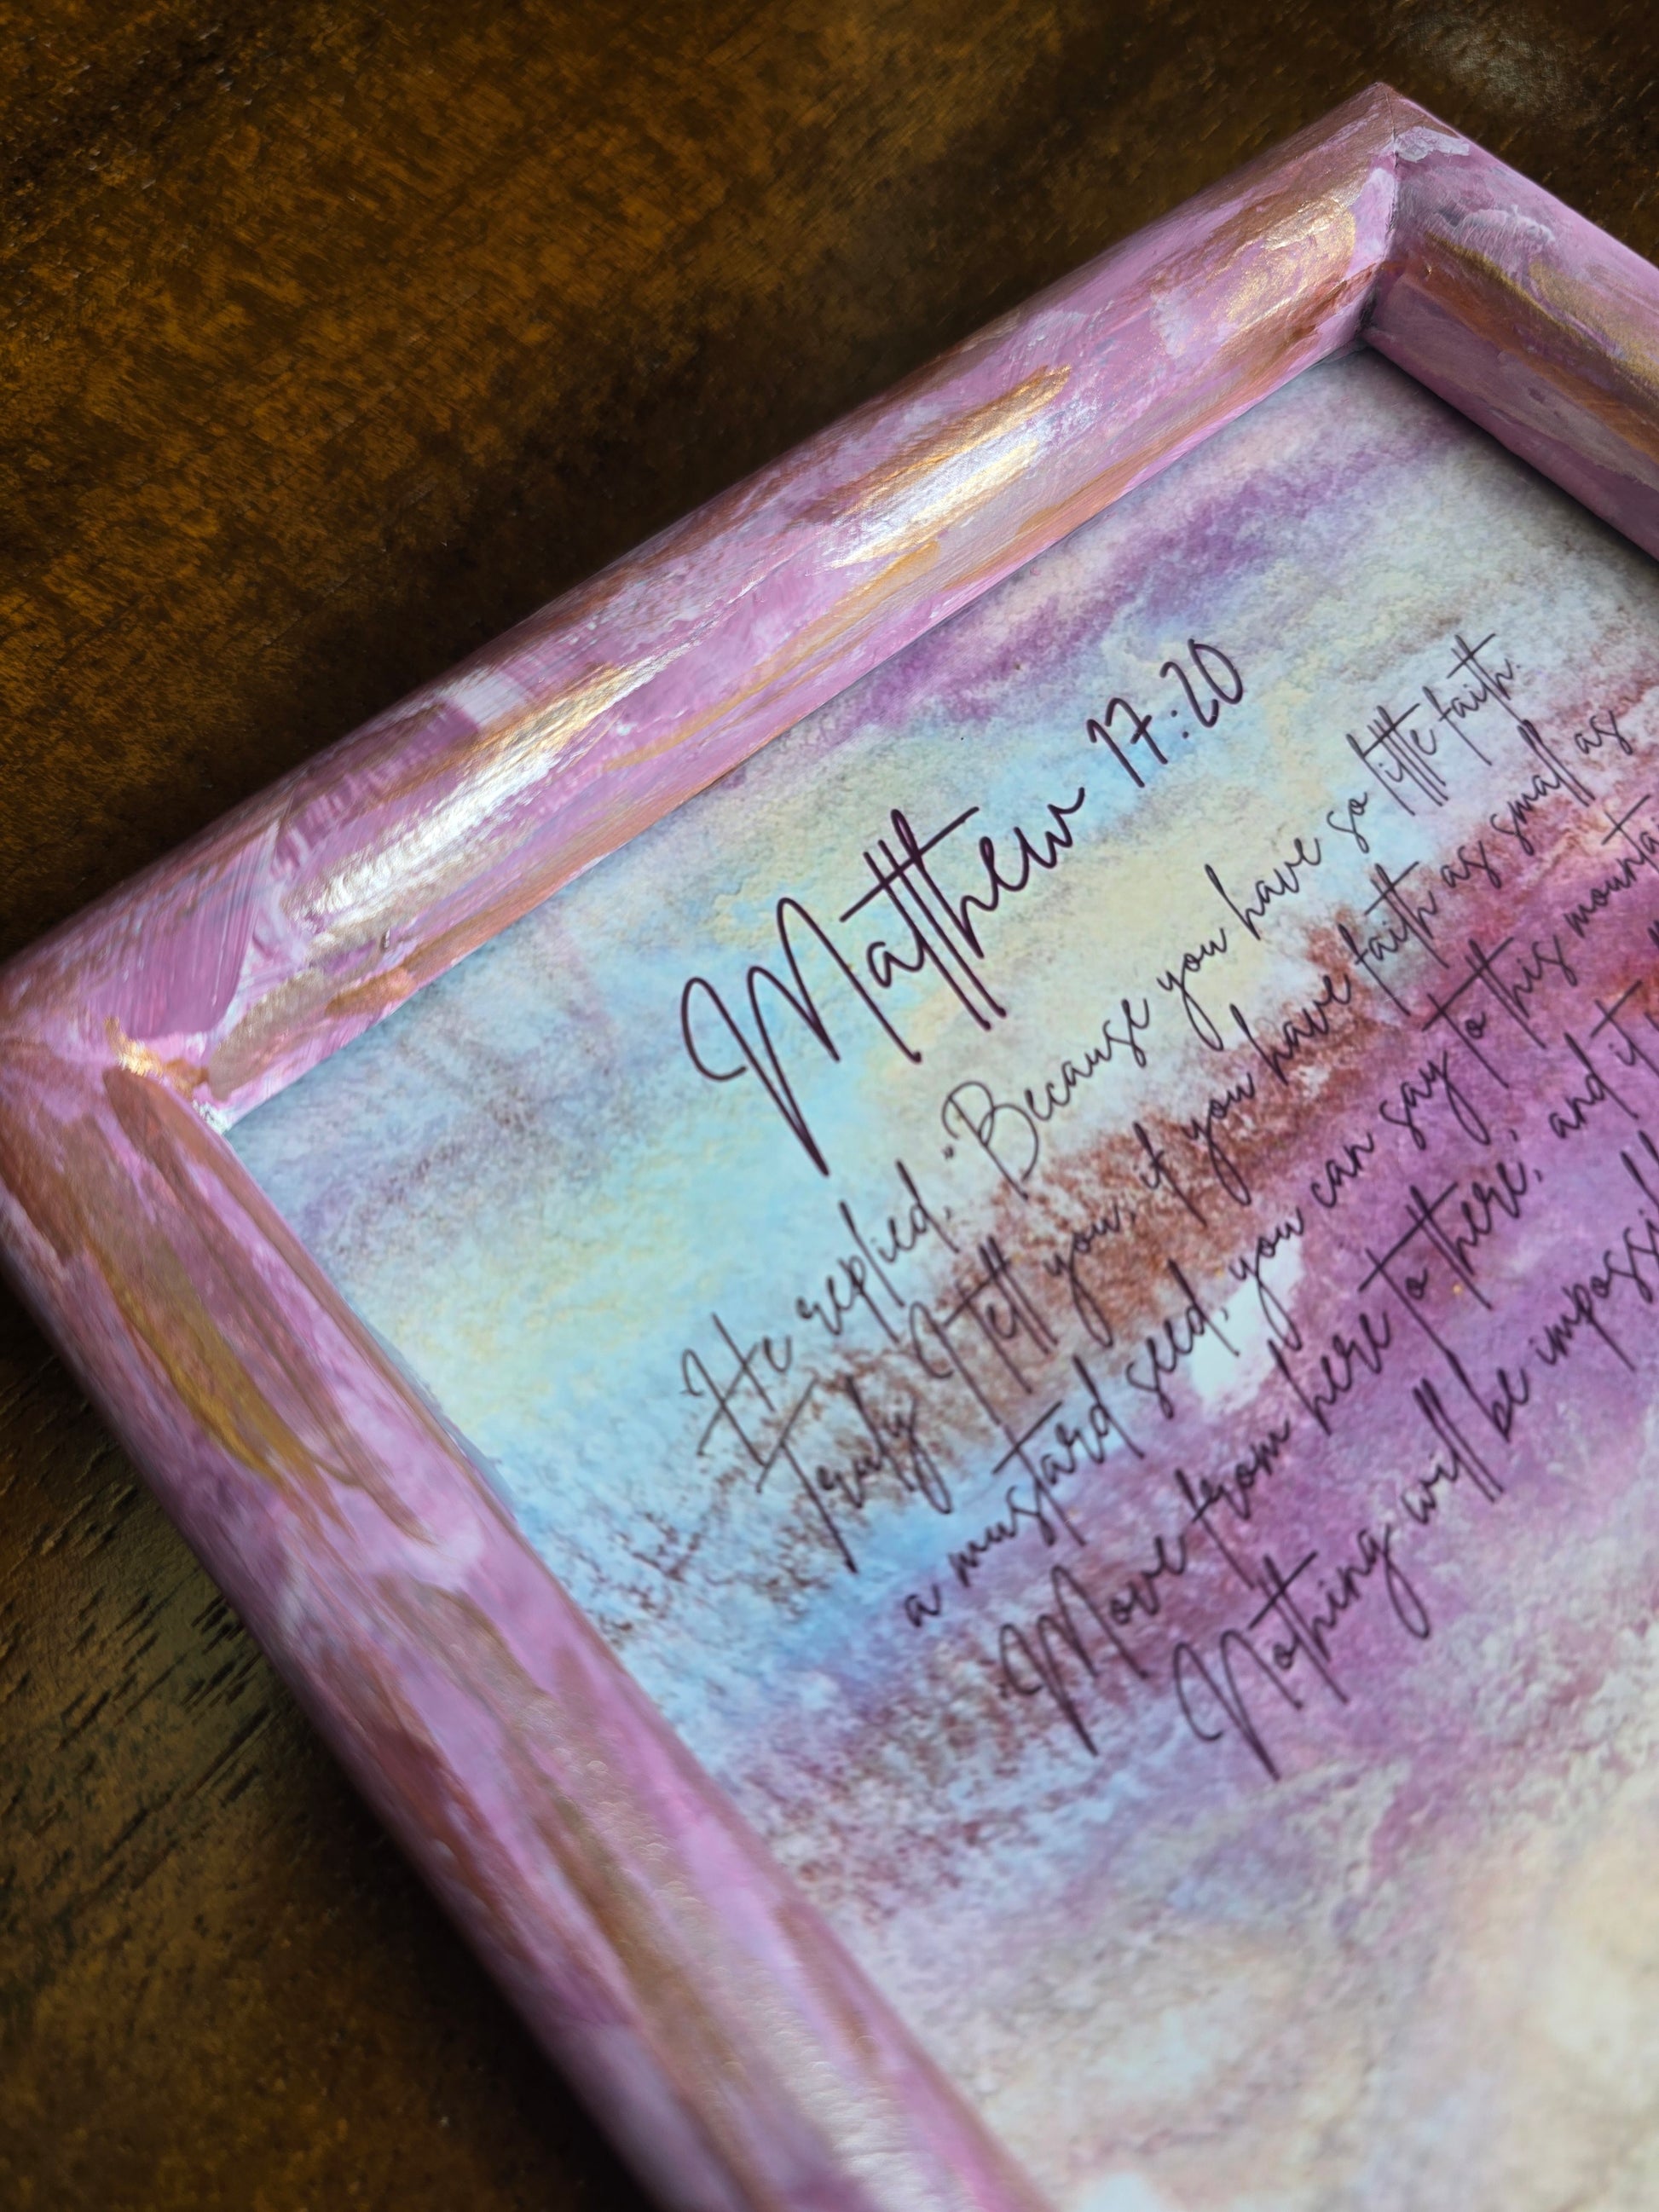 Matthew 17:20
He replied, "Because you have so little faith.
Truly I tell you, if you have faith as small as
a mustard seed, you can say to this
Move from here to there,' and it
Nothing will be